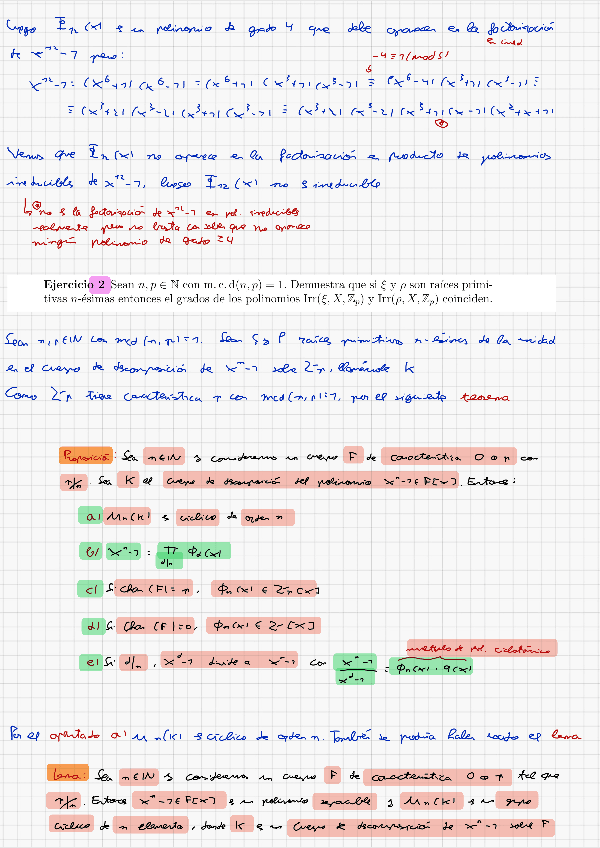 Luego Φ₁₂(x) es un polinomio de grado 4 que debe aparecer en la factorización
en irred
de x¹²-1 pero:
-4≡1(mod 5)
x¹²-1 = (x⁶+1)(x⁶-1) = (x⁶+1)(x³+1)(x³-1) ≡ (x⁶-4)(x³+1)(x³-1) ≡
≡ (x³+2)(x³-2)(x³+1)(x³-1) ≡ (x³+2)(x³-2)(x³+1)(x-1)(x²+x+1)
Vemos que Φ₁₂(x) no aparece en la factorización en producto de polinomios
irreducibles de x¹²-1, luego Φ₁₂(x) no es irreducible
no es la factorización de x¹²-1 en pol. irreducibles
realmente pero nos basta con saber que no aparece
ningún polinomio de grado ≥4
Ejercicio 2 Sean n, p ∈ ℕ con m. c. d(n, p) = 1. Demuestra que si ξ y ρ son raíces primi-
tivas n-ésimas entonces el grados de los polinomios Irr(ξ, X, ℤₚ) y Irr(ρ, X, ℤₚ) coinciden.
Sean n, p ∈ ℕ con mcd(n, p)=1. Sean ξ y ρ raíces primitivas n-ésimas de la unidad
en el cuerpo de descomposición de xⁿ-1 sobre ℤₚ, llamémosle K
Como ℤₚ tiene característica p con mcd(n, p)=1, por el siguiente teorema
Proposición: Sea n∈ℕ y consideremos un cuerpo F de característica 0 o p con
p∤n. Sea K el cuerpo de descomposición del polinomio xⁿ-1∈F[x]. Entonces:
a) μₙ(K) es cíclico de orden n
b) xⁿ-1 = ∏ Φd(x)
d|n
c) Si Char(F)=p, Φₙ(x) ∈ ℤₚ[x]
d) Si Char(F)=0, Φₙ(x) ∈ ℤ[x]
múltiplo de pol. ciclotómico
e) Si d|n, xᵈ-1 divide a xⁿ-1 con (xⁿ-1)/(xᵈ-1) = Φₙ(x)·q(x)
Por el apartado a) μₙ(K) es cíclico de orden n. También se podría haber usado el lema
Lema: Sea n∈ℕ y consideremos un cuerpo F de característica 0 o p tal que
p∤n. Entonces xⁿ-1∈F[x] es un polinomio separable y μₙ(K) es un grupo
cíclico de n elementos, donde K es un cuerpo de descomposición de xⁿ-1 sobre F